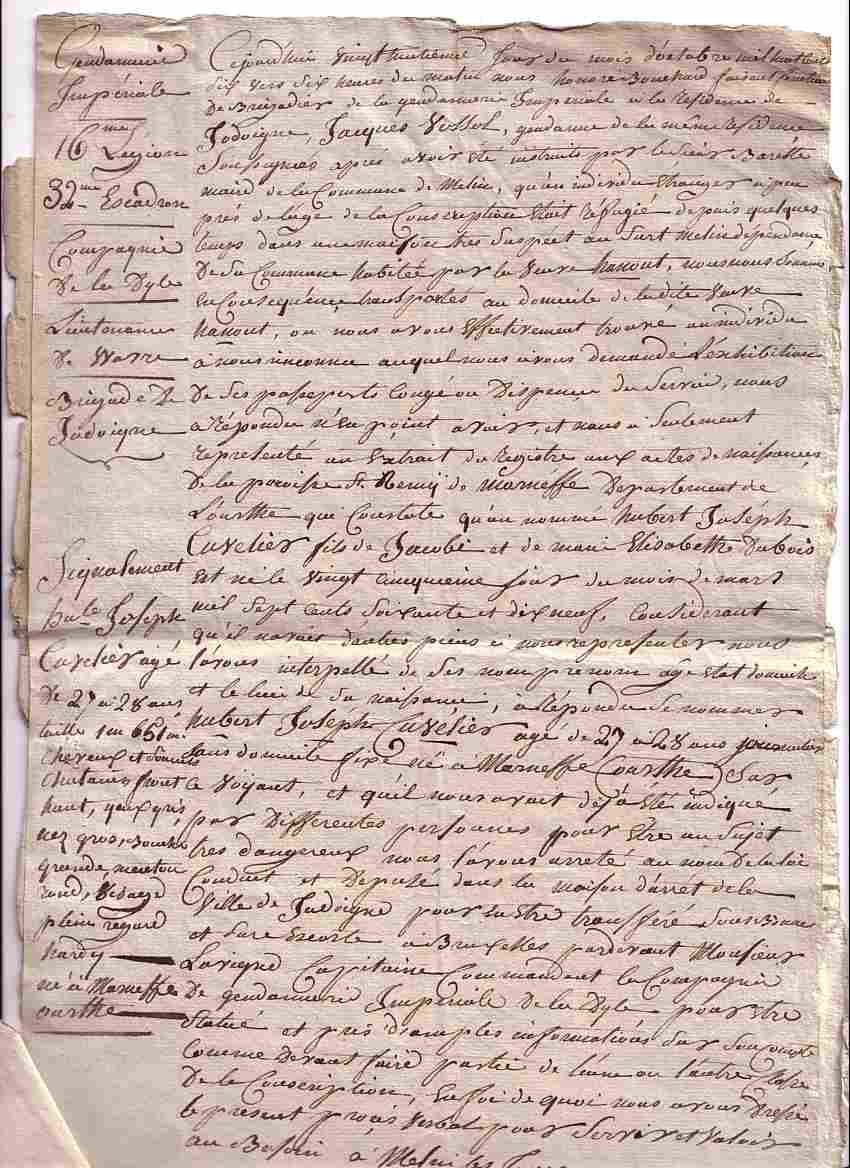 Gendarmerie
Impériale
16me Légion
32me Escadron
Compagnie
De la Dyle
Lieutenance
de Wavre
Brigade De
Jodoigne
Signalement
Joseph
Cavelier agé
De 27 a 28 ans
taille 1m 661m
cheveux et sourcils
chatains front
haut, yeux gris,
nez gros, Bouche
grande, menton
rond, Visage
plein regard
hardy
né à Marneffe
ourthe
Cejourd'hui vingt huitième Jour du mois d'octobre mil huit cent
dix vers six heures du matin nous honoré Bouchard faisant fonction
De Brigadier de la gendarmerie Impériale à la Résidence de
Jodoigne, Jacques Vossol, gendarme de la même résidence
Soussignés après avoir été instruits par le Sieur
maire de la Commune de Melin, qu'un individu étranger a peu
près de l'age de la Conscription était refugié depuis quelques
tems dans une maison très suspect au Sart Melin dependance
De Sa Commune habitée par la Veuve hanout, nous nous sommes
en Conséquence, transportés au domicile de la dite Veuve
hanout, ou nous avons effectivement trouvé un individu
à nous inconnu auquel nous avons demandé L'exhibition
De Ses passeports Congé ou Dispense du Service, nous
a répondu n'en point avoir, et nous a Seulement
représenté un Extrait du Registre aux actes de naissances
De la paroisse St Remij de Marneffe Departement de
L'ourthe qui Constate qu'un nommé hubert Joseph
Cavelier fils de Jacobi et de marie Elisabeth Dubois
Est né le Vingt cinquième jour du mois de mars
mil Sept cents Soixante et dix neuf, Considerant
qu'il n'avait d'autres pièces à nous representer nous
l'avons interpellé de Ses nom prenom age état domicile
et le lieu de Sa naissance, a répondu Se nommer
hubert Joseph Cavelier agé de 27 a 28 ans journalier
Sans domicile fixe né à Marneffe (Ourthe) Sur
ce Voyant, et qu'il nous avait déjà été indiqué
par Differentes personnes pour être un Sujet
très dangereux nous l'avons arreté au nom De la loi
Conduit et Deposé dans la maison d'arret de la
Ville de Jodoigne pour en être transféré Sous Bonne
et Sure Escorte à Bruxelles pardevant Monsieur
Lavigne Capitaine Commandant la Compagnie
De gendarmerie Impériale De la Dyle pour être
Statué et pris d'amples informations Sur Son compte
Comme Devant faire partie de l'une ou l'autre Classe
De la Conscription, En foi de quoi nous avons Dressé
le present procès Verbal pour Servir et Valoir
au Besoin à Melin les Jour